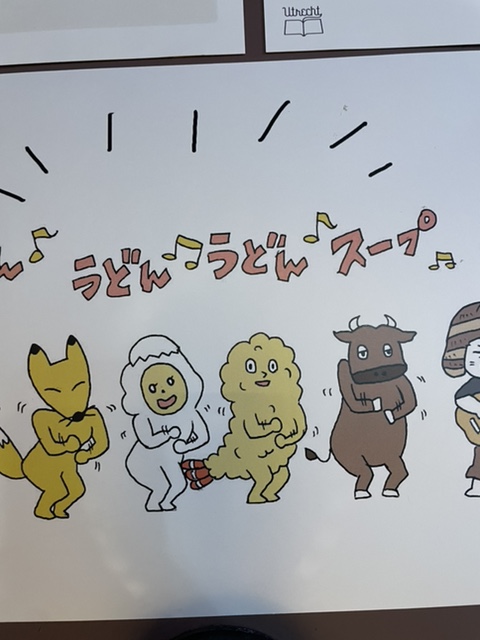 Utrecht
ん♪うどん♪うどん♪スープ♪